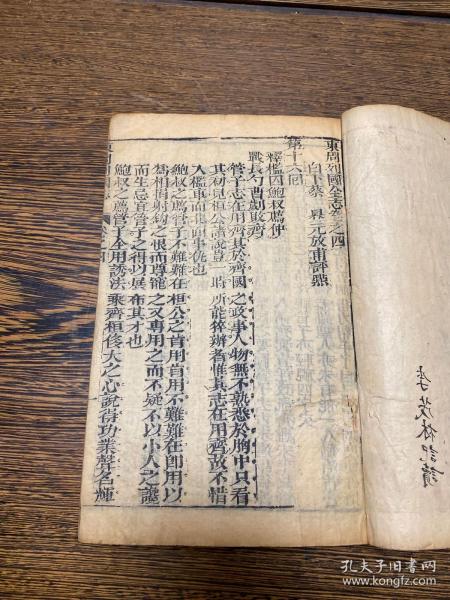 東周列國全志卷之四
白下蔡 昇元放甫評點
第十六回
釋檻囚鮑叔薦仲
戰長勺曹劌敗齊
管子志在用齊其於齊國之政事人物無不熟悉於胸中只看
其初見桓公諸說豈一時所能猝辦者惟其志在用齊故不惜
入檻車而北面事仇也
鮑叔之薦管子不難難在桓公之肯用肯用不難難在即用以
爲相相射鉤之恨而尊寵之又專用之而不疑不以小人之讒
而生忌宜管子之得以展布其才也
鮑叔之薦管子全用誘法乘齊桓侈大之心說得功業聲名輝
李茂林記讀
孔夫子旧书网
www.kongfz.com